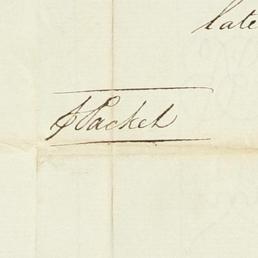 late
⅌ Packet